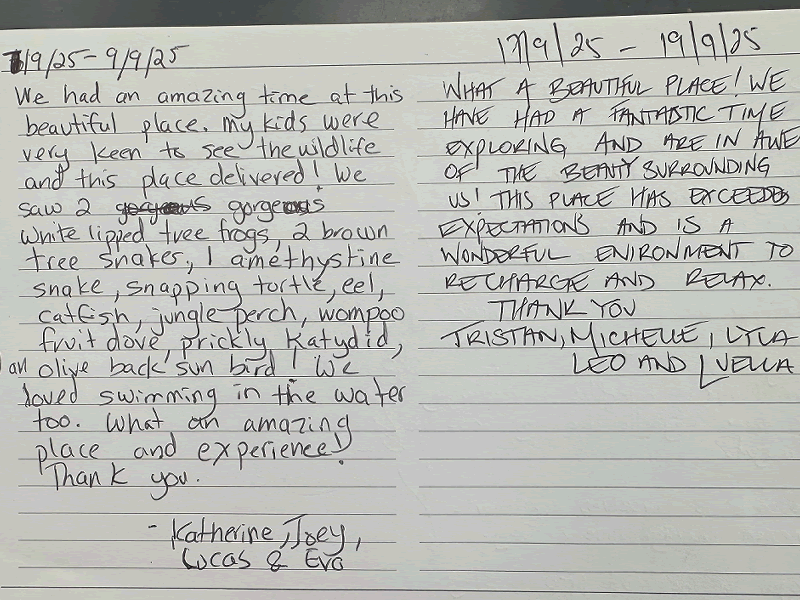 7/9/25 - 9/9/25
We had an amazing time at this
beautiful place. My kids were
very keen to see the wildlife
and this place delivered! We
saw 2 gorgeous gorgeous
white lipped tree frogs, 2 brown
tree snakes, 1 amethystine
snake, snapping turtle, eel,
catfish, jungle perch, wompoo
fruit dove, prickly katydid,
an olive back sun bird! We
loved swimming in the water
too. What an amazing
place and experience!
Thank you.
- Katherine, Joey,
Lucas & Eva
17/9/25 - 19/9/25
WHAT A BEAUTIFUL PLACE! WE
HAVE HAD A FANTASTIC TIME
EXPLORING AND ARE IN AWE
OF THE BEAUTY SURROUNDING
US! THIS PLACE HAS EXCEEDED
EXPECTATIONS AND IS A
WONDERFUL ENVIRONMENT TO
RECHARGE AND RELAX.
THANK YOU
TRISTAN, MICHELLE, LYLA
LEO AND LUELLA